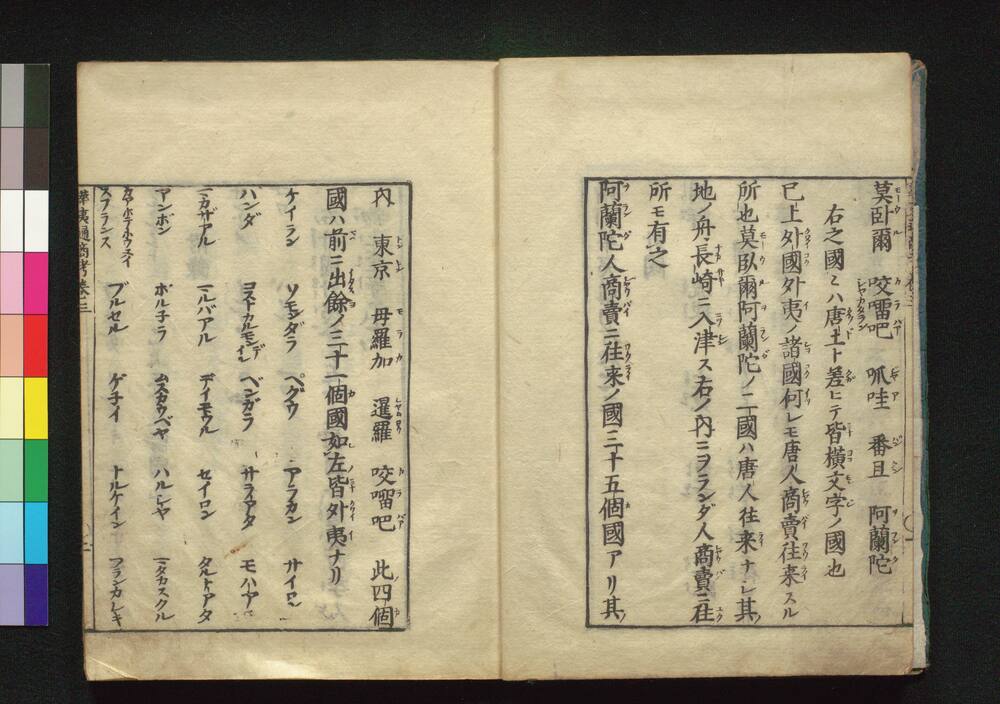 莫臥爾 咬𠺕吧 呱哇 番旦 阿蘭陀
右之國ミハ唐土ト差ヒテ皆横文字ノ國也
已上外國外夷ノ諸國何レモ唐人商賣往来スル
所也莫臥爾阿蘭陀ノ二國ハ唐人往来ナシ其
地ノ舟長崎ニ入津ス右ノ内ニヲランダ人商賣ニ往
所モ有之
阿蘭陀人商賣ニ往来ノ國三十五個國アリ其
内 東京 母羅加 暹羅 咬𠺕吧 此四個
國ハ前ニ出餘ノ三十一個國如左皆外夷ナリ
ケイラン ソモンダラ ペグウ アラカン サイロン
ハンダ コストカルモンデイン ベンガラ サラアタ モハア
ニカザアル ニルバアル デイモウル セイロン タルトアタ
アンボン ボルチラ ムスカウベヤ ハルシヤ ニタカスクル
スフランス ブルセル ゲチイ トルケイン フランカレキ
華夷通商考巻三